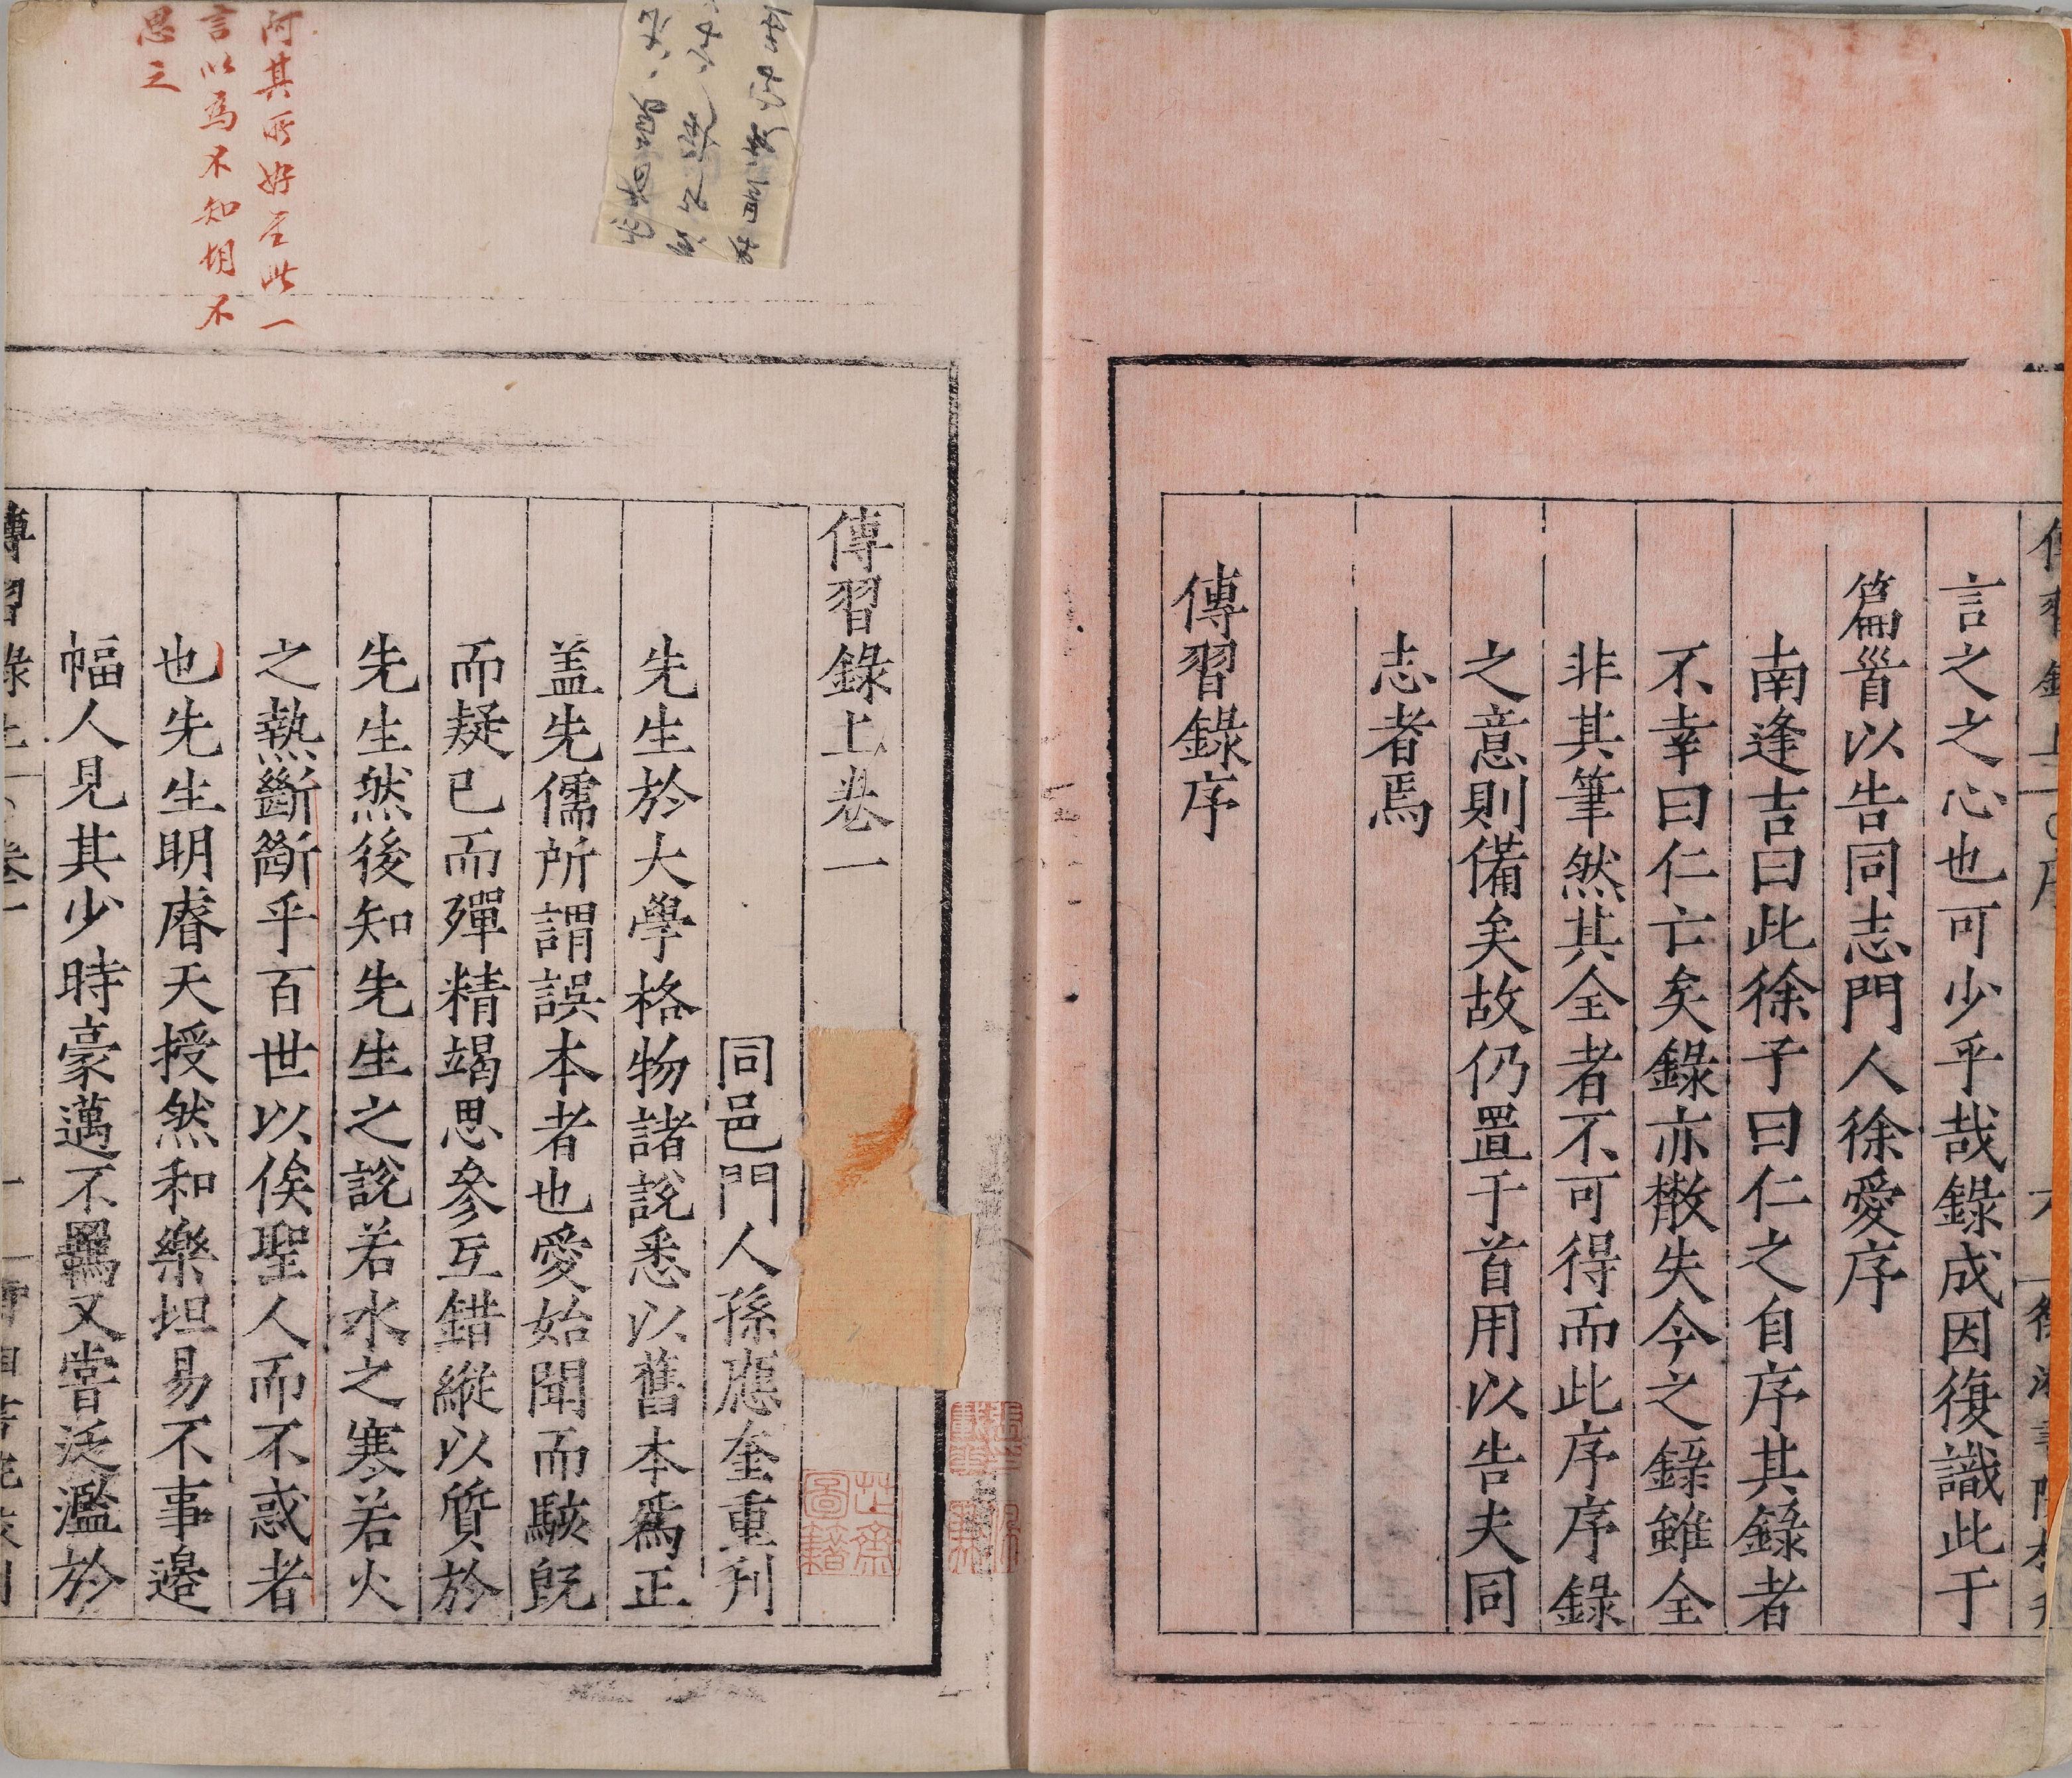 言之之心也可少乎哉錄成因復識此于
篇首以告同志門人徐愛序
南逢吉曰此徐子曰仁之自序其錄者
不幸曰仁亡矣錄亦散失今之錄雖全
非其筆然其全者不可得而此序序錄
之意則備矣故仍置于首用以告夫同
志者焉
傳習錄序
傳習錄上卷一
同邑門人孫應奎重刋
先生於大學格物諸說悉以舊本爲正
盖先儒所謂誤本者也愛始聞而駭旣
而疑已而殫精竭思參互錯縱以質於
先生然後知先生之說若水之寒若火
之熱斷斷乎百世以俟聖人而不惑者
也先生明睿天授然和樂坦易不事邉
幅人見其少時豪邁不羈又嘗泛濫於
傳習錄上 卷一
阿其所好至此一
言以爲不知胡不
思之
芷齋圖籍